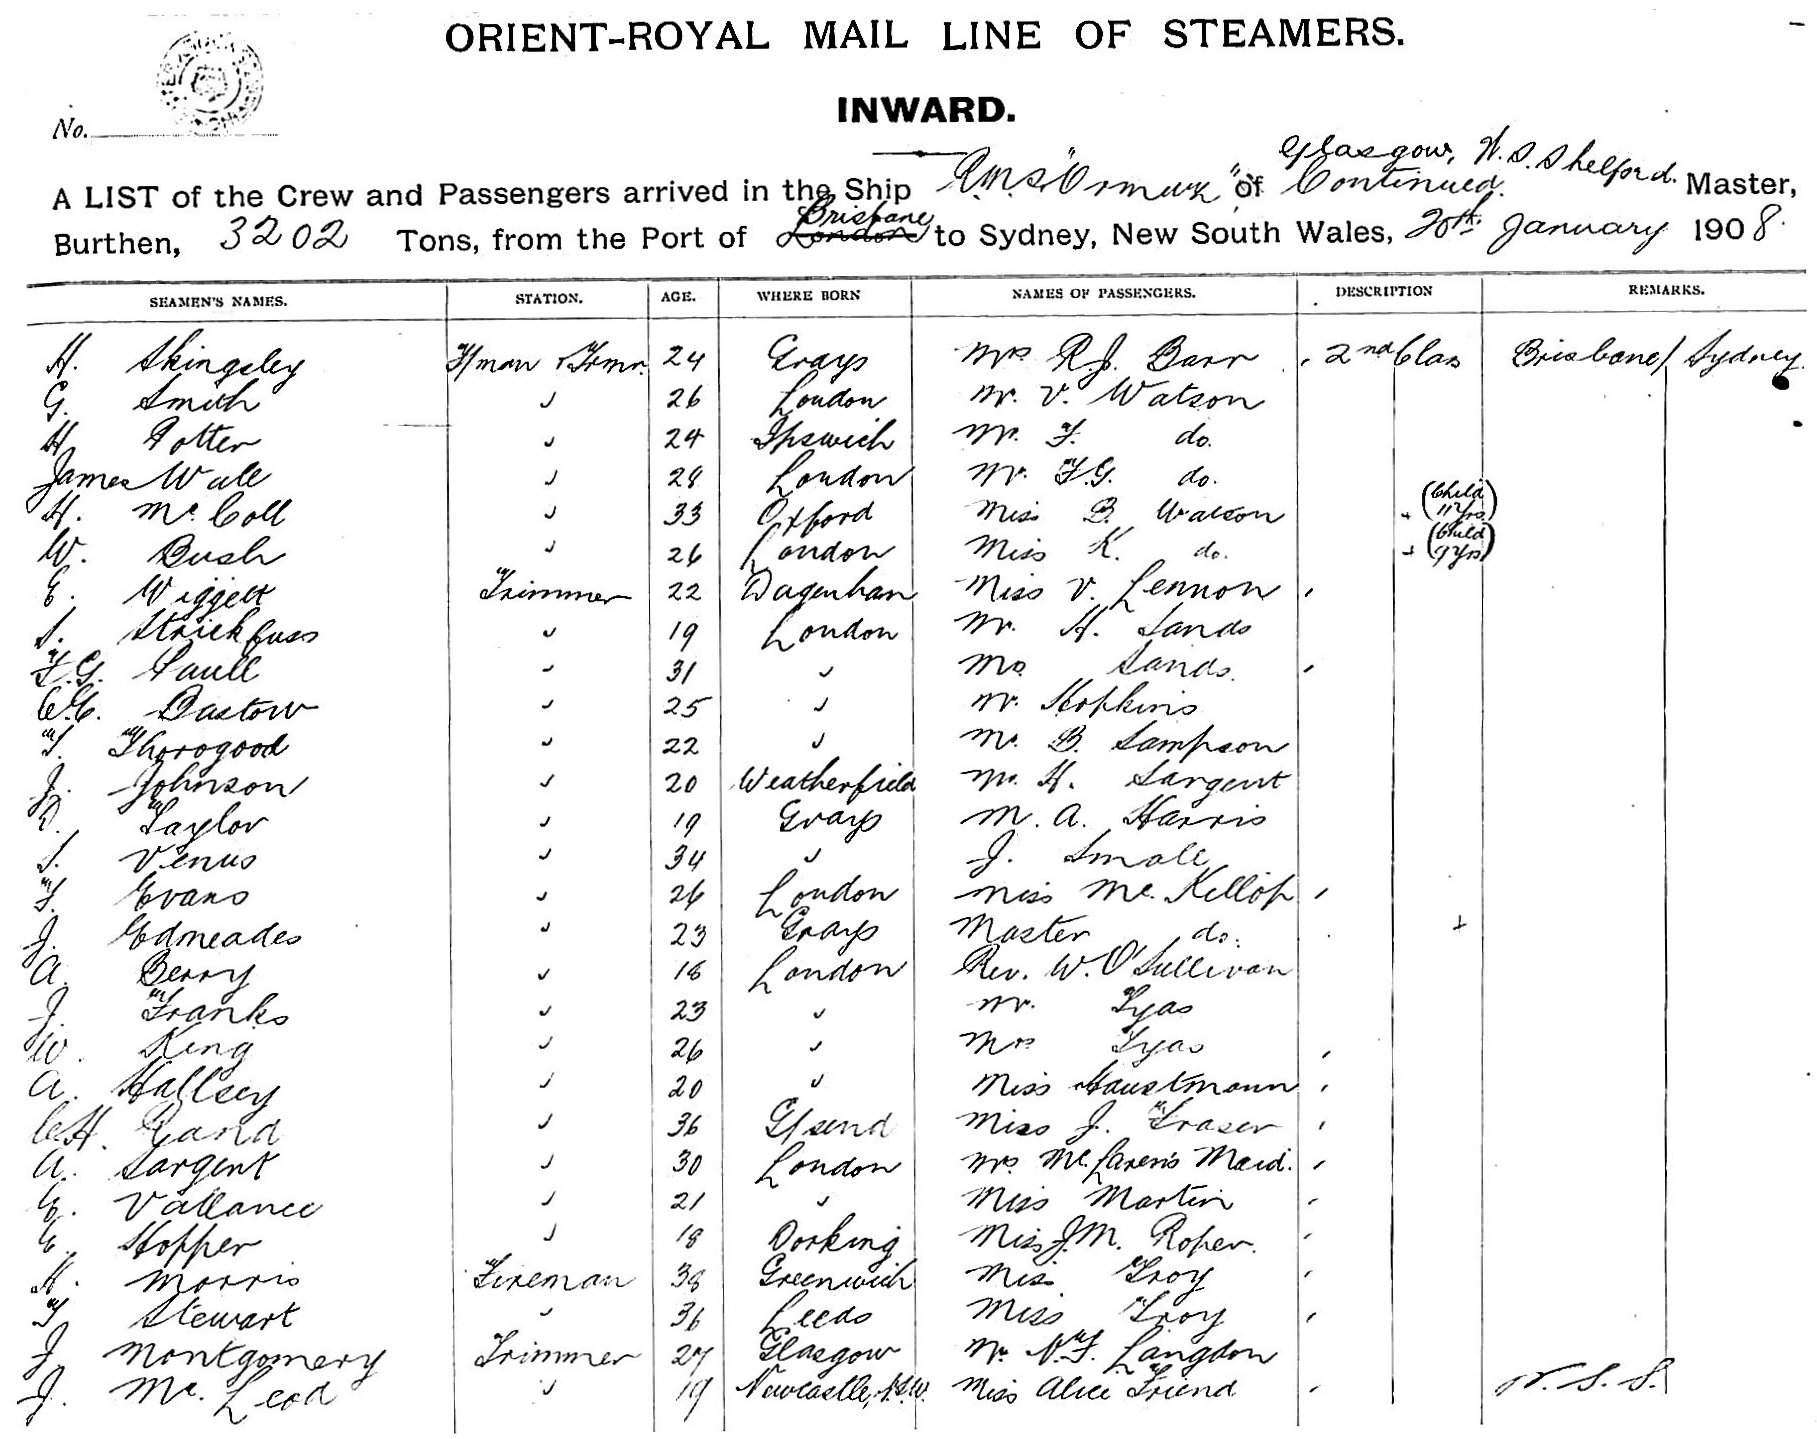 ORIENT-ROYAL MAIL LINE OF STEAMERS.
No.
INWARD.
Glasgow, W. S. Shelford.
A LIST of the Crew and Passengers arrived in the Ship R.M.S. "Ormuz" of Continued. Master,
Brisbane
Burthen, 3202 Tons, from the Port of London to Sydney, New South Wales, 20th January 1908.
SEAMEN'S NAMES. STATION. AGE. WHERE BORN NAMES OF PASSENGERS. DESCRIPTION REMARKS.
H. Skingsley F/man & Trmr. 24 Grays Mrs R.J. Barr 2nd Clas Brisbane/Sydney
G. Smith 26 London Mr. V. Watson
H. Potter 24 Ipswich Mr. F. do.
James Wale 28 London Mr. F.G. do.
H. Mc Coll 33 Oxford Miss B. Watson (Child 11 Yrs.)
W. Bush 26 London Miss K. do. (Child 9 Yrs)
E. Wiggett Trimmer 22 Dagenham Miss V. Lennon
S. Strickfuss 19 London Mr. H. Sands
F.G. Saull 31 Mrs Sands.
C.C. Bastow 25 Mr. Hopkins
T. Thorogood 22 Mr. B. Sampson
J. Johnson 20 Weatherfield Mr. H. Sargent
D. Taylor 19 Grays M. A. Harris
S. Venus 34 J. Small
F. Evans 26 London Miss Mc. Killop
J. Edmeades 23 Grays Master do.
A. Berry 18 London Rev. W. O'Sullivan
J. Franks 23 Mr. Tyas
W. King 26 Mrs Tyas
A. Hallsey 20 Miss Haustmann
C.H. Gand 36 G/send Miss J. Fraser
A. Sargent 30 London Mrs. Mc. Laren's Maid.
E. Vallance 21 Miss Martin
E. Hopper 18 Dorking Miss J.M. Roper.
H. Morris Fireman 38 Greenwich Miss Troy
T Stewart 36 Leeds Miss Troy
J Montgomery Trimmer 27 Glasgow Mr. N.F. Langdon
J. Mc. Leod 19 Newcastle, N.S.W. Miss Alice Friend W. S. S.